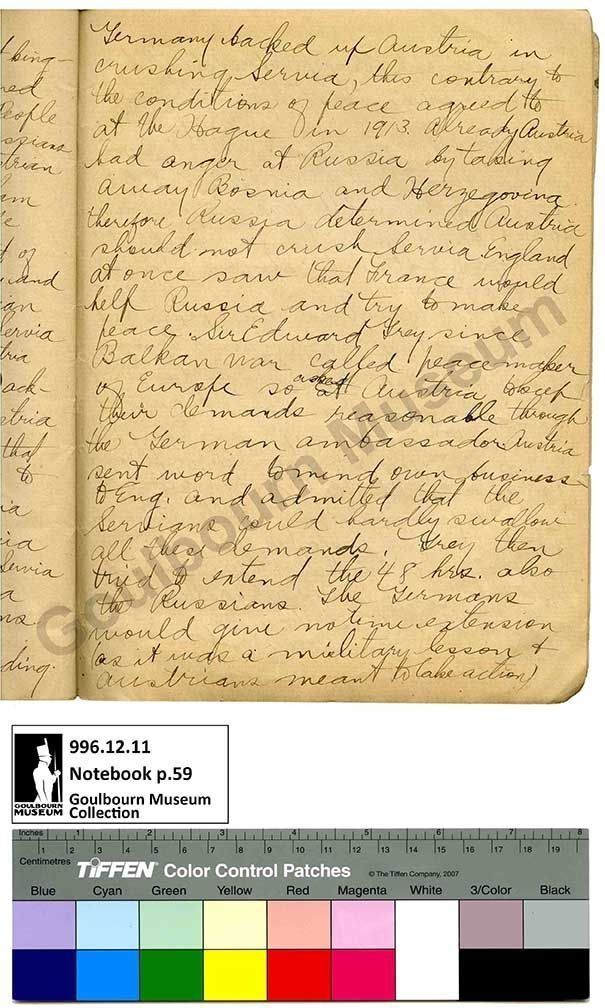 Germany backed up Austria in
crushing Servia, this contrary to
the conditions of peace agreed to
at the Hague in 1913. Already Austria
had anger at Russia by taking
away Bosnia and Herzegovina
therefore Russia determined Austria
should not crush Servia England
at once saw that France would
help Russia and try to make
peace. Sir Edward Grey since
Balkan war called peacemaker
of Europe so asked Austria to keep
their demands reasonable through
the German ambassador Austria
sent word to mind own business
to Eng. and admitted that the
Servians could hardly swallow
all these demands. Grey then
tryed to extend the 48 hrs. also
the Russians. The Germans
would give no time extension
(as it was a military lesson &
Austrians meant to take action)
king-
red
People
trian
am
of
and
ian
Servia
tria
back
stria
that
to
ia
Servia
a
ns
ding.
Goulbourn Museum
996.12.11
Notebook p.59
Goulbourn Museum
Collection
GOULBOURN
MUSEUM
Inches 1 2 3 4 5 6 7 8
Centimetres 1 2 3 4 5 6 7 8 9 10 11 12 13 14 15 16 17 18 19
TIFFEN Color Control Patches © The Tiffen Company, 2007
Blue Cyan Green Yellow Red Magenta White 3/Color Black